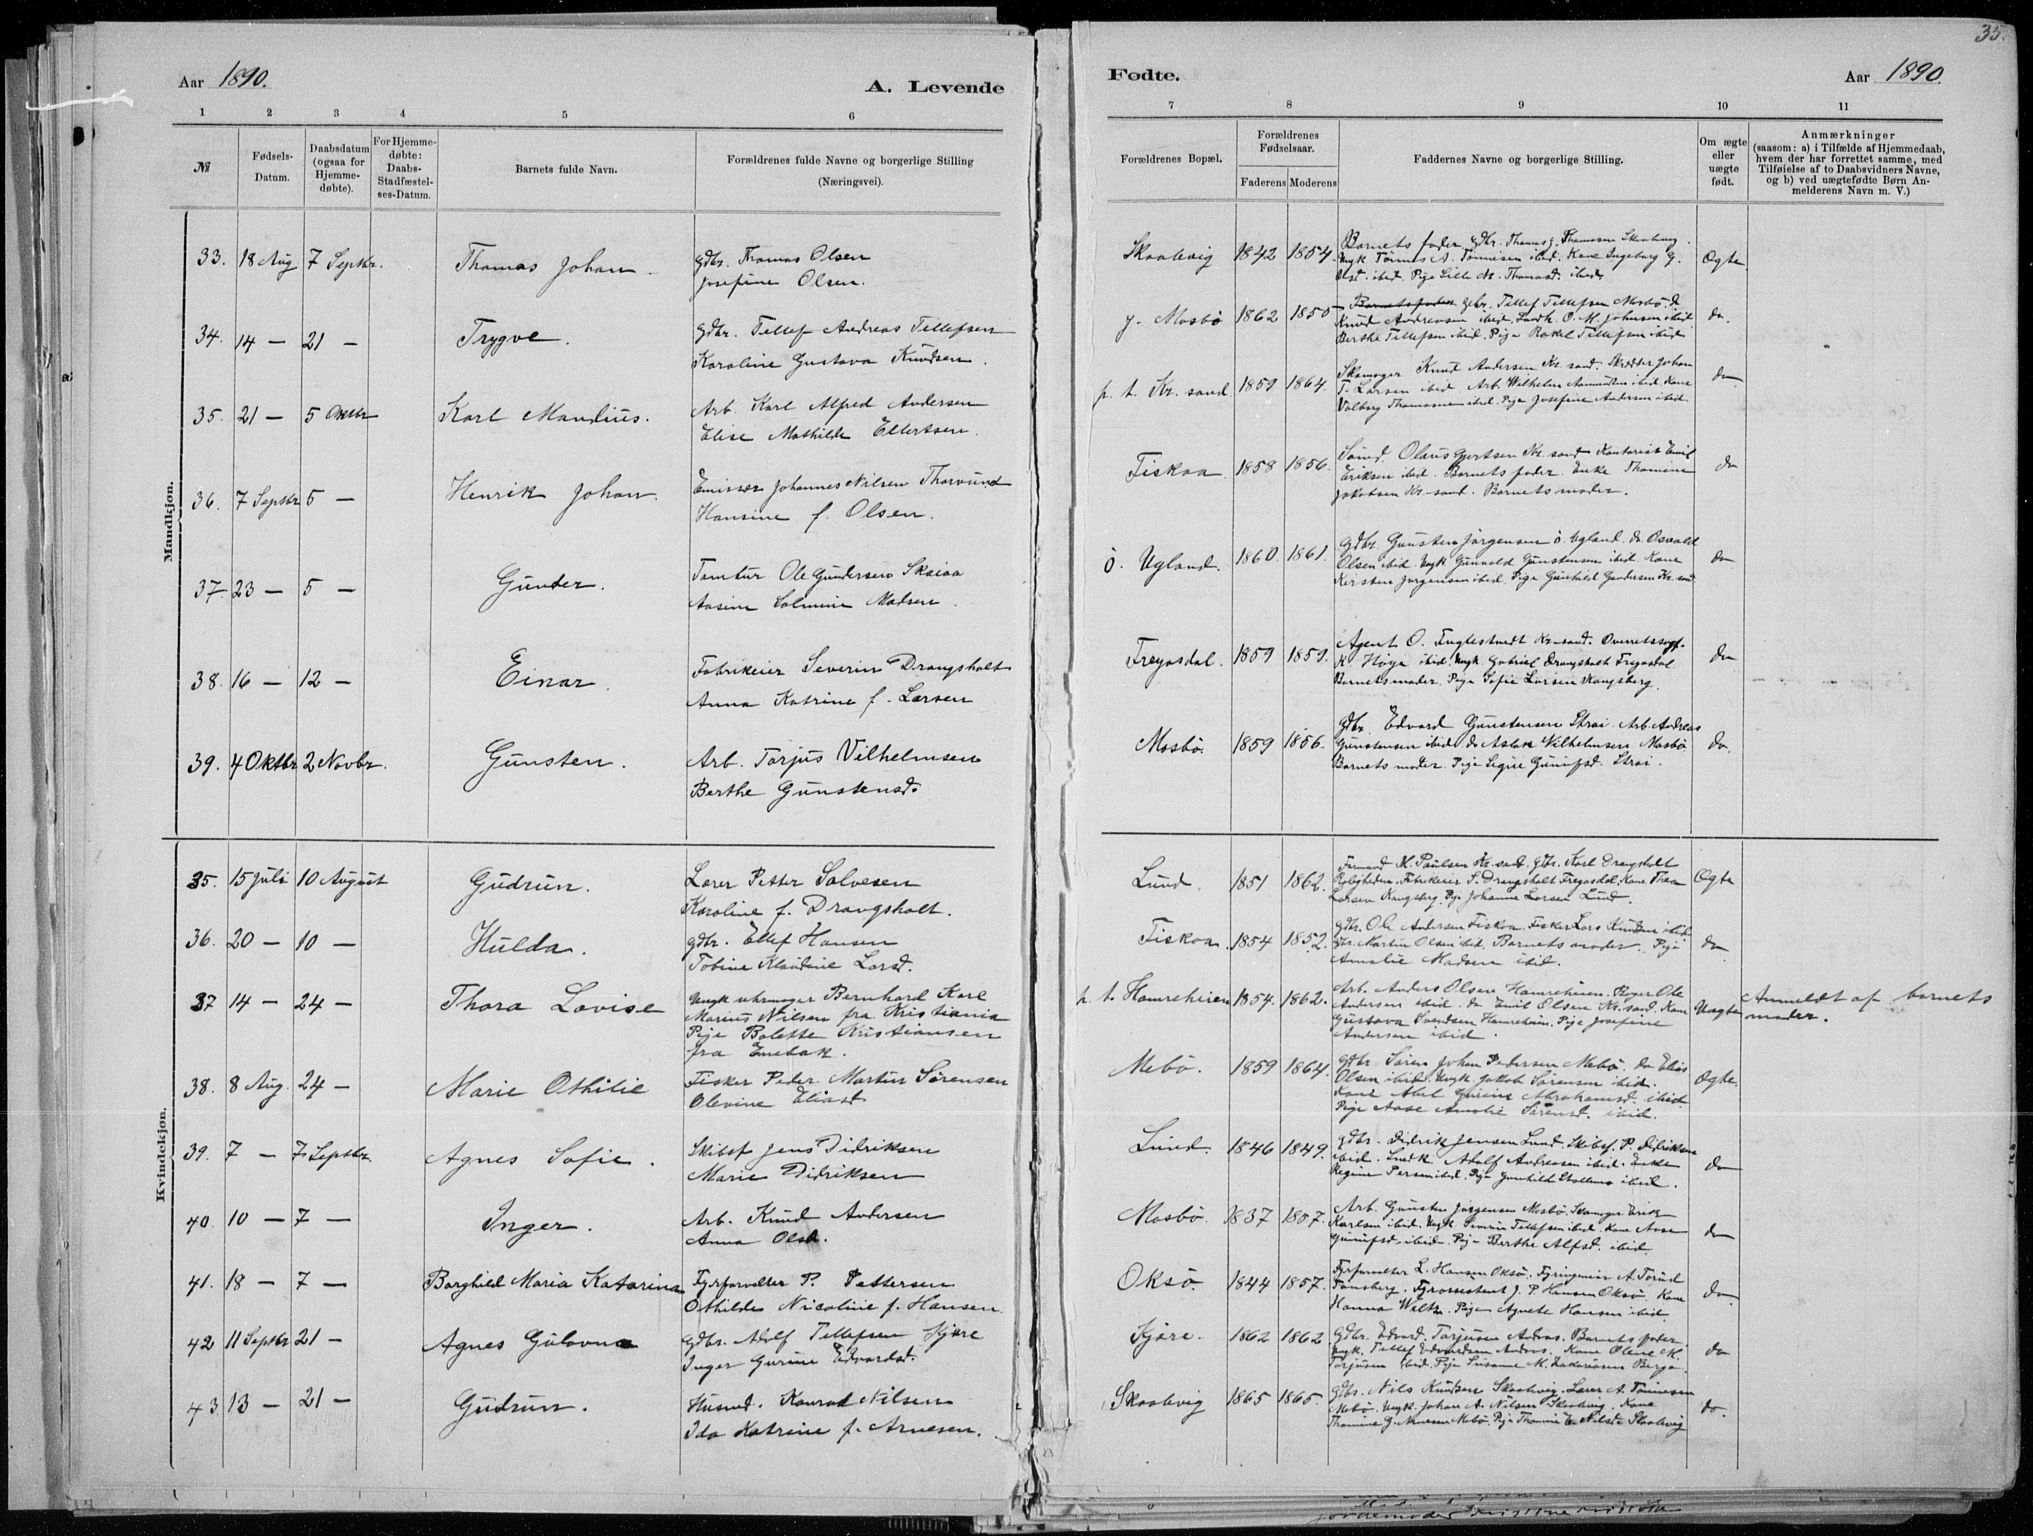 Aar 1890.
A. Levende
1 2 3 4 5 6
№
Fødsels-Datum.
Daabsdatum (ogsaa for Hjemme-døbte).
For Hjemme-døbte: Daabs-Stadfæstel-ses-Datum.
Barnets fulde Navn.
Forældrenes fulde Navne og borgerlige Stilling (Næringsvei).
Mandkjøn.
33. 18 Aug 7 Septbr. Thomas Johan. Gdbr. Thomas Olsen
Josefine Olsen.
34. 14 — 21 — Trygve. Gdbr. Tellef Andreas Tellefsen
Karoline Gustava Knudsen.
35. 21 — 5 Oktbr Karl Mandius. Arb. Karl Alfred Andersen
Elise Mathilde Ellertsen.
36. 7 Septbr 5 — Henrik Johan. Emissær Johannes Nilsen Thorvund
Hansine f. Olsen.
37. 23 — 5 — Gunder. Tomtur Ole Gundersen Skaiaa
Aasine Salmine Madsen.
38. 16 — 12 — Einar. Fabrikeier Severin Drangsholt
Anna Katrine f. Larsen
39. 4 Oktbr 2 Novbr. Gunsten. Arb. Torjus Vilhelmsen
Berthe Gunstensd.
Kvindekjøn.
35. 15 Juli 10 August Gudrun. Lærer Petter Salvesen
Karoline f. Drangsholt.
36. 20 — 10 — Hulda. Gdbr. Ellef Hansen
Tobine Klaudine Larsd.
37 14 — 24 — Thora Lovise Ungk uhrmager Bernhard Karl
Marius Nilsen fra Kristiania
Pige Bolette Kristiansen
fra Enebak.
38. 8 Aug. 24 — Marie Othilie Fisker Peder Martin Sørensen
Olevine Eliasd.
39. 7 — 7 Septbr. Agnes Sofie. Skibsf Jens Didriksen
Marie Didriksen
40. 10 — 7 — Inger. Arb. Knud Andersen
Anna Olsd.
41. 18 — 7 — Borghild Maria Katarina Fyrforvalter P. Pettersen
Othilde Nicoline f. Hansen.
42 11 Septbr 21 — Agnes Gulovna Gdbr. Adolf Tellefsen Kjære
Inger Gurine Edvardsd.
43 13 — 21 — Gudrun. Husmd. Konrad Nilsen
Ida Katrine f. Arnesen.
35.
Fødte.
Aar 1890.
7 8 9 10 11
Forældrenes Bopæl.
Forældrenes Fødselsaar.
Faderens Moderens
Faddernes Navne og borgerlige Stilling.
Om ægte eller uægte født.
Anmærkninger
(saasom: a) i Tilfælde af Hjemmedaab,
hvem der har forrettet samme, med
Tilføielse af to Daabsvidners Navne,
og b) ved uægtefødte Børn An-
melderens Navn m. V.)
Skaalevig 1842 1854. Barnets fader Gdbr. Thomas J. Thomassen Skaalevig.
Ungk Tønnes A. Tønnisen ibid. Kone Ingeborg G.
ibid. Pige Lille M. Thomasd. ibid. Ægte
y. Mosbø 1862 1850 Gdbr. Tellef Tellefsen Mosbø. do
Knud Andreasen ibid. Landh. O. M. Johnsen ibid
Berthe Tellefsen ibid. Pige Rakel Tellefsen ibid do.
p. t. Kr. sand 1859 1864. Skomager Knud Andersen Kr. sand. Skrædder Johan
T. Larsen ibid. Arb. Wilhelm Aanundsen ibid. Kone
Valborg Thomassen ibid. Pige Josefine Andersen ibid. do
Fiskaa 1858 1856. Sømd. Olaus Gjertsen Kr. sand. Kontorist Emil
Eriksen ibid. Barnets fader. Enke Thomine
Jakobsen Kr-sand. Barnets moder. do
ö. Ugland. 1860 1861. Gdbr. Gunsten Jørgensen ö. Ugland. do Osvald
Olsen ibid. Ungk Gunvald Gunstensen ibid. Kone
Kirsten Jørgensen ibid. Pige Gunhild Gundersen Kr. sand do
Frejasdal. 1859 1859. Agent O. Kr-sand. Overretssagf.
K. Høye ibid. Ungk. Gabriel Drangsholt Frejasdal
Barnets moder. Pige Sofie Larsen Kongsberg. do
Mosbø. 1859 1856. Gdbr. Edvard Gunstensen Strai. Arb. Andreas
Gunstensen ibid. do Aslak Wilhelmsen Mosbø
Barnets moder. Pige Signe Strai. do.
Lund. 1851 1862. Formand M. Paulsen Kr. sand. Gdbr. Karl Drangsholt
Fabrikeier S. Drangsholt Frejasdal. Kone Thea
Larsen Kongsberg. Pige Johanne Larsen Lund. Ægte
Fiskaa. 1854 1852. Gdbr. Ole Andersen Fiskaa. Fisker Lars Knudsen ibid
Gbr. Martin Olsen ibid. Barnets moder. Pige
Amalie Madsen ibid. do
p. t. Hamreheien 1854. 1862. Arb. Anders Olsen Hamreheien. Ole
Andersen ibid. do Emil Olsen Kr. sand. Kone
Gustava Svendsen Hamreheien. Pige Josefine
Andersen ibid. Uægte Anmeldt af barnets
moder.
Mebø. 1859 1864. Gdbr. Søren Johan Pedersen Mebø. do Elias
Olsen ibid. Ungk Jakob Sørensen ibid.
Kone Abel Gurine Abrahamsd. ibid.
Pige Aase Amalie Sørensd. ibid. Ægte.
Lund. 1846 1849. Gdbr. Didrik Jensen Lund. Skibsf. P. Didriksen
ibid. Adolf Andreasen ibid. Enke
Regine Persen ibid. Pige Gunhild ibid. do
Mosbø. 1837 1857. Arb. Gunsten Jørgensen Mosbø. Skomager Erik
Karlsen ibid. Ungk Severin Tellefsen ibid. Kone Aase
ibid. Pige Berthe Alfsd. ibid. do
Oksø. 1844 1857. Fyrforvalter L. Hansen Oksø. A.
Tønsberg. Fyrassistent J. P. Hansen Oksø. Kone
Hanna Pige Agnete Hansen ibid. do.
Kjære. 1862 1862 Gdbr. Edvard Torjusen Barnets fader
Ungk. Tellef Edvardsen Kone Olene M.
Torjusen ibid. Pige Susanne M. Zakariasen Berge. do
Skaalevig 1865 1865. Gdbr. Nils Knudsen Skaalevig. Lærer A. Tønnesen
Mebø. Ungk. Johan A. Nilsen Skaalevig. Kone
Thomine G. Mebø. Pige Thomine Nilsd. Skaalevig do.